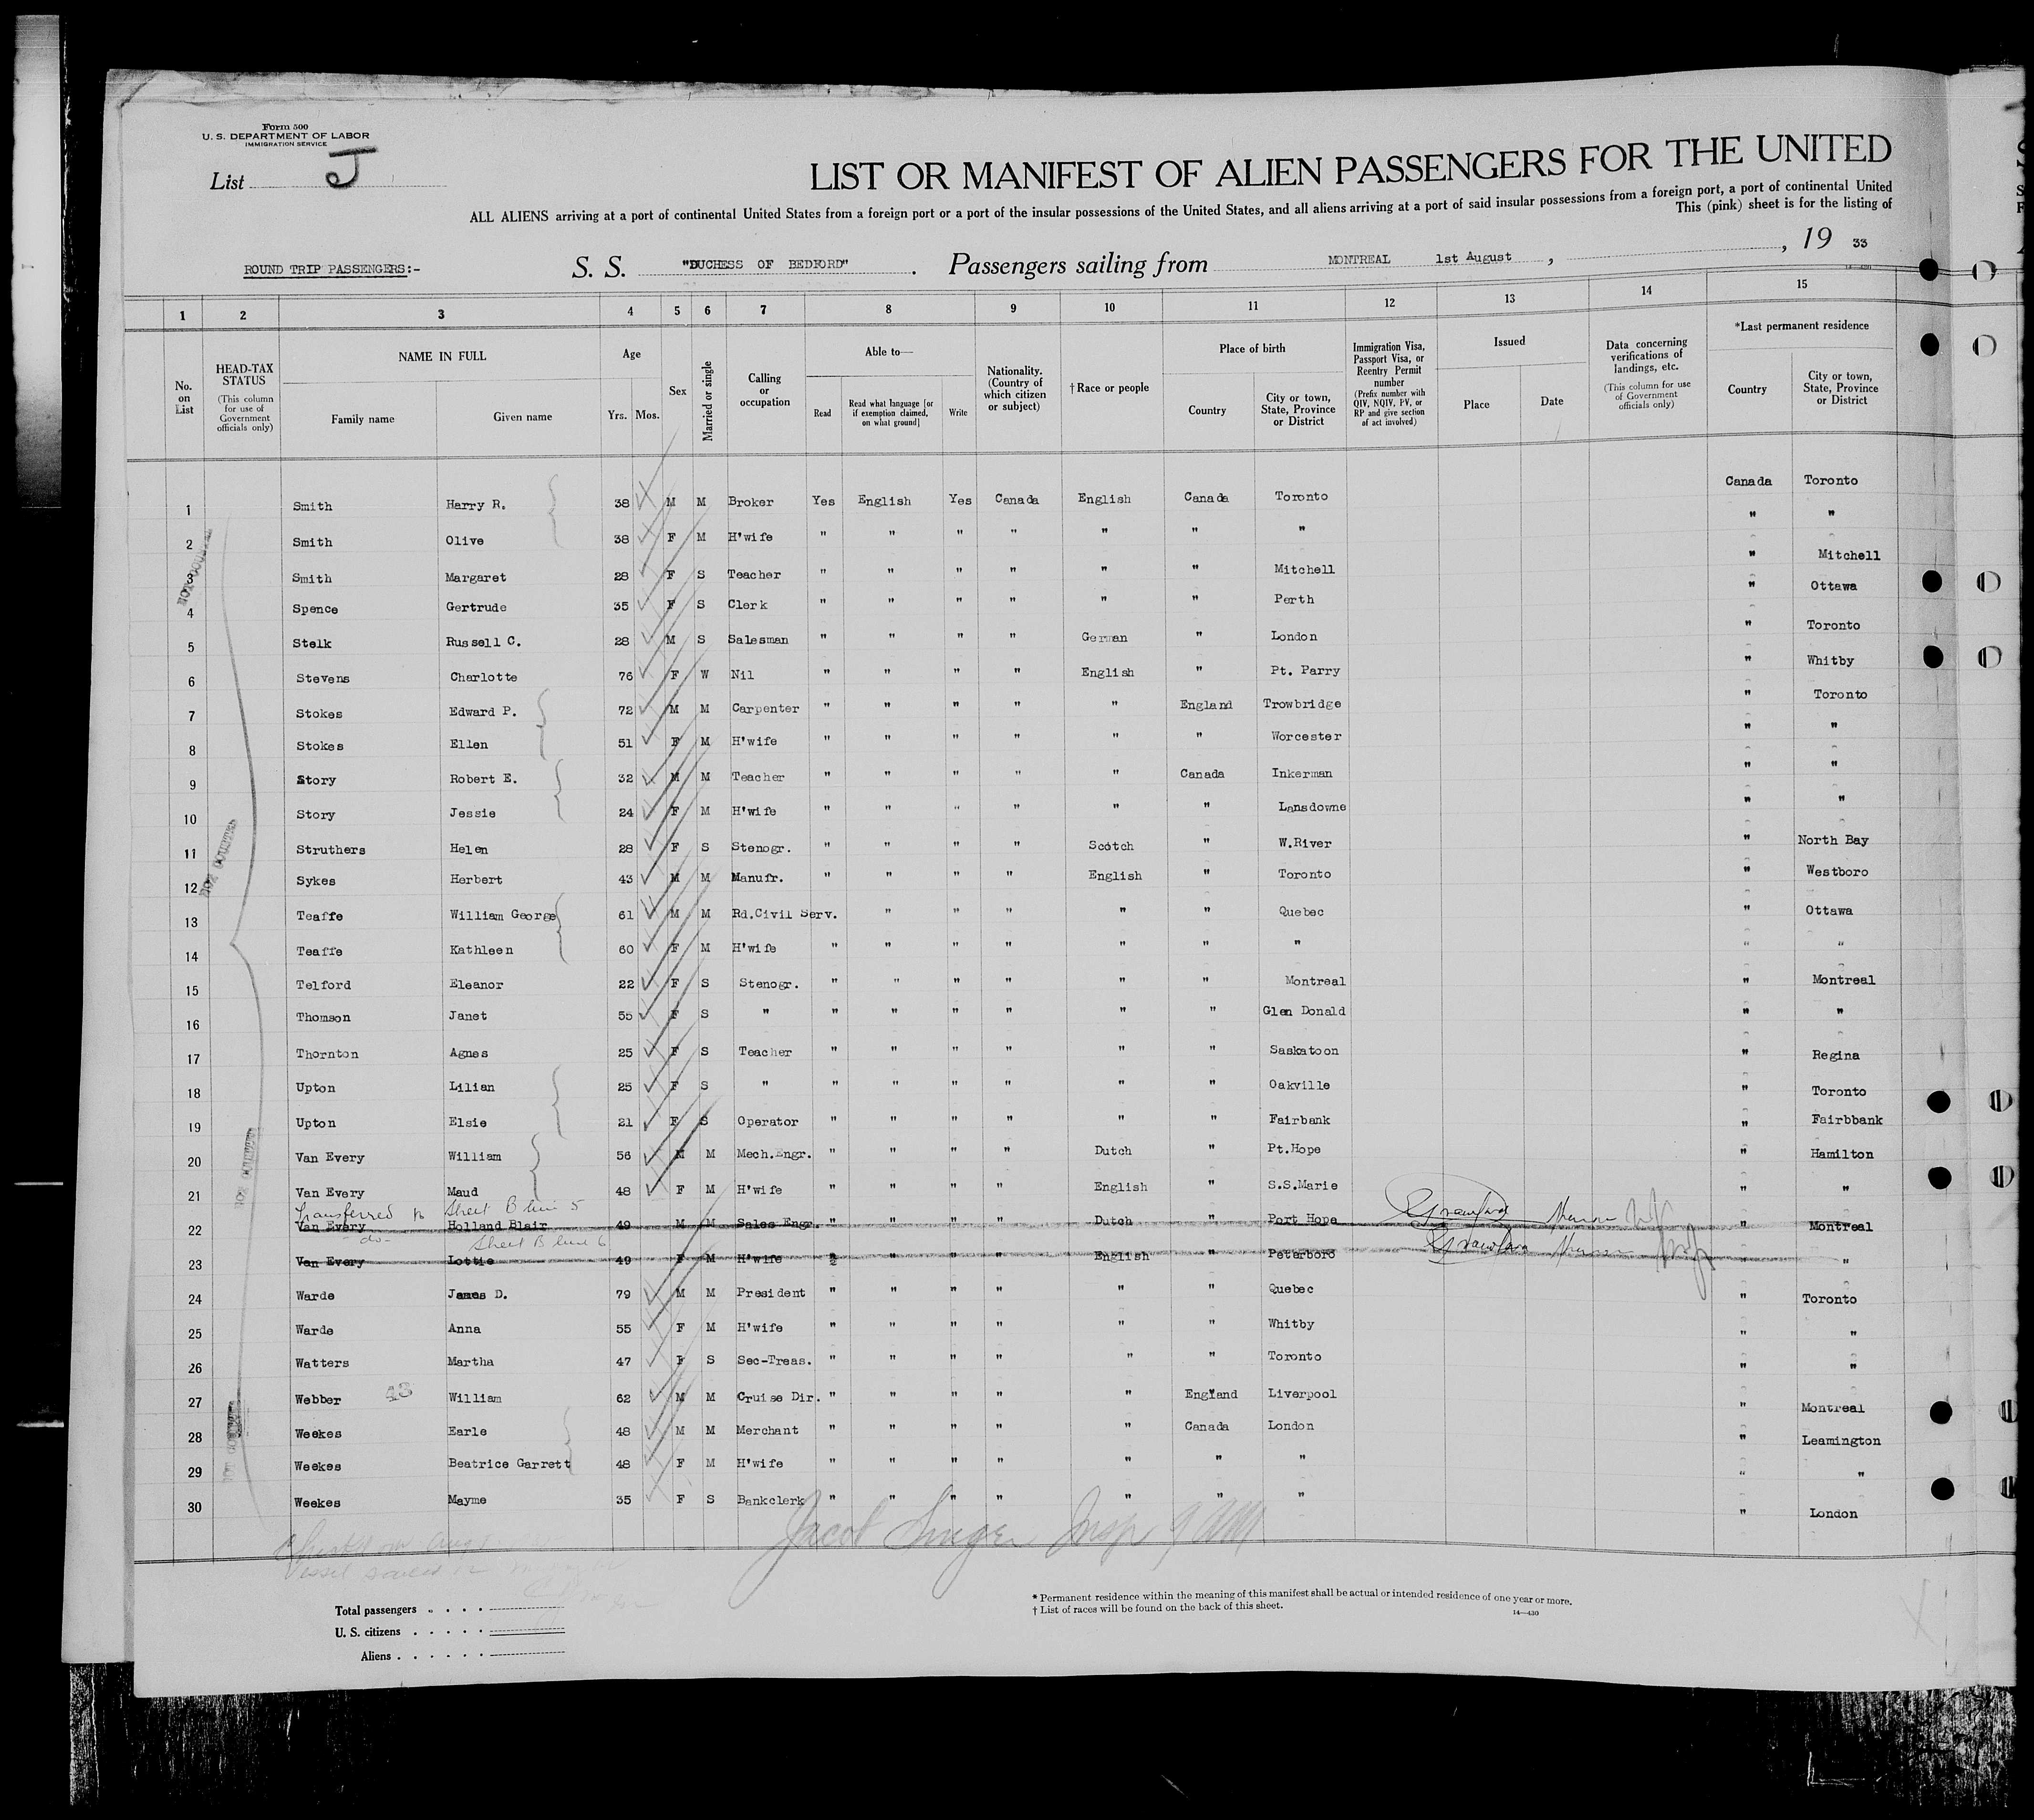 Form 500
U. S. DEPARTMENT OF LABOR
IMMIGRATION SERVICE
List J
LIST OR MANIFEST OF ALIEN PASSENGERS FOR THE UNITED
ALL ALIENS arriving at a port of continental United States from a foreign port or a port of the insular possessions of the United States, and all aliens arriving at a port of said insular possessions from a foreign port, a port of continental United
This (pink) sheet is for the listing of
ROUND TRIP PASSENGERS:- S. S. "DUCHESS OF BEDFORD" . Passengers sailing from MONTREAL 1st August , , 19 33
1 2 3 4 5 6 7 8 9 10 11 12 13 14 15
No. on List
HEAD-TAX STATUS (This column for use of Government officials only)
NAME IN FULL Family name Given name
Age Yrs. Mos.
Sex
Married or single
Calling or occupation
Able to— Read Read what language [or if exemption claimed, on what ground] Write
Nationality. (Country of which citizen or subject)
† Race or people
Place of birth Country City or town, State, Province or District
Immigration Visa, Passport Visa, or Reentry Permit number (Prefix number with QIV, NQIV, PV, or RP and give section of act involved)
Issued Place Date
Data concerning verifications of landings, etc. (This column for use of Government officials only)
*Last permanent residence Country City or town, State, Province or District
1 Smith Harry R. 38 M M Broker Yes English Yes Canada English Canada Toronto Canada Toronto
2 Smith Olive 38 F M H'wife " " " " " " " " "
3 Smith Margaret 28 F S Teacher " " " " " " Mitchell " Mitchell
4 Spence Gertrude 35 F S Clerk " " " " " " Perth " Ottawa
5 Stelk Russell C. 28 M S Salesman " " " " German " London " Toronto
6 Stevens Charlotte 76 F W Nil " " " " English " Pt. Parry " Whitby
7 Stokes Edward P. 72 M M Carpenter " " " " " England Trowbridge " Toronto
8 Stokes Ellen 51 F M H'wife " " " " " " Worcester " "
9 Story Robert E. 32 M M Teacher " " " " " Canada Inkerman " "
10 Story Jessie 24 F M H'wife " " " " " " Lansdowne " "
11 Struthers Helen 28 F S Stenogr. " " " " Scotch " W.River " North Bay
12 Sykes Herbert 43 M M Manufr. " " " " English " Toronto " Westboro
13 Teaffe William George 61 M M Rd.Civil Serv. " " " " " Quebec " Ottawa
14 Teaffe Kathleen 60 F M H'wife " " " " " " " " "
15 Telford Eleanor 22 F S Stenogr. " " " " " " Montreal " Montreal
16 Thomson Janet 55 F S " " " " " " " Glen Donald " "
17 Thornton Agnes 25 F S Teacher " " " " " " Saskatoon " Regina
18 Upton Lilian 25 F S " " " " " " " Oakville " Toronto
19 Upton Elsie 21 F S Operator " " " " " " Fairbank " Fairbbank
20 Van Every William 56 M M Mech.Engr. " " " " Dutch " Pt.Hope " Hamilton
21 Van Every Maud 48 F M H'wife " " " " English " S.S.Marie " "
Transferred to Sheet B line 5
22 Van Every Holland Blair 49 M M Sales Engr. " " " " Dutch " Port Hope " Montreal
-do- Sheet B line 6
23 Van Every Lottie 49 F M H'wife " " " " English " Peterboro " "
24 Warde James D. 79 M M President " " " " " " Quebec " Toronto
25 Warde Anna 55 F M H'wife " " " " " " Whitby " "
26 Watters Martha 47 F S Sec-Treas. " " " " " " Toronto " "
27 Webber 43 William 62 M M Cruise Dir. " " " " " England Liverpool " Montreal
28 Weekes Earle 48 M M Merchant " " " " " Canada London " Leamington
29 Weekes Beatrice Garrett 48 F M H'wife " " " " " " " " "
30 Weekes Mayme 35 F S Bankclerk " " " " " " " " London
NOT COUNTED
NOT COUNTED
NOT COUNTED
Jacob Singer Insp
Total passengers . . . .
U. S. citizens . . . . .
Aliens . . . . . .
* Permanent residence within the meaning of this manifest shall be actual or intended residence of one year or more.
† List of races will be found on the back of this sheet.
14—430